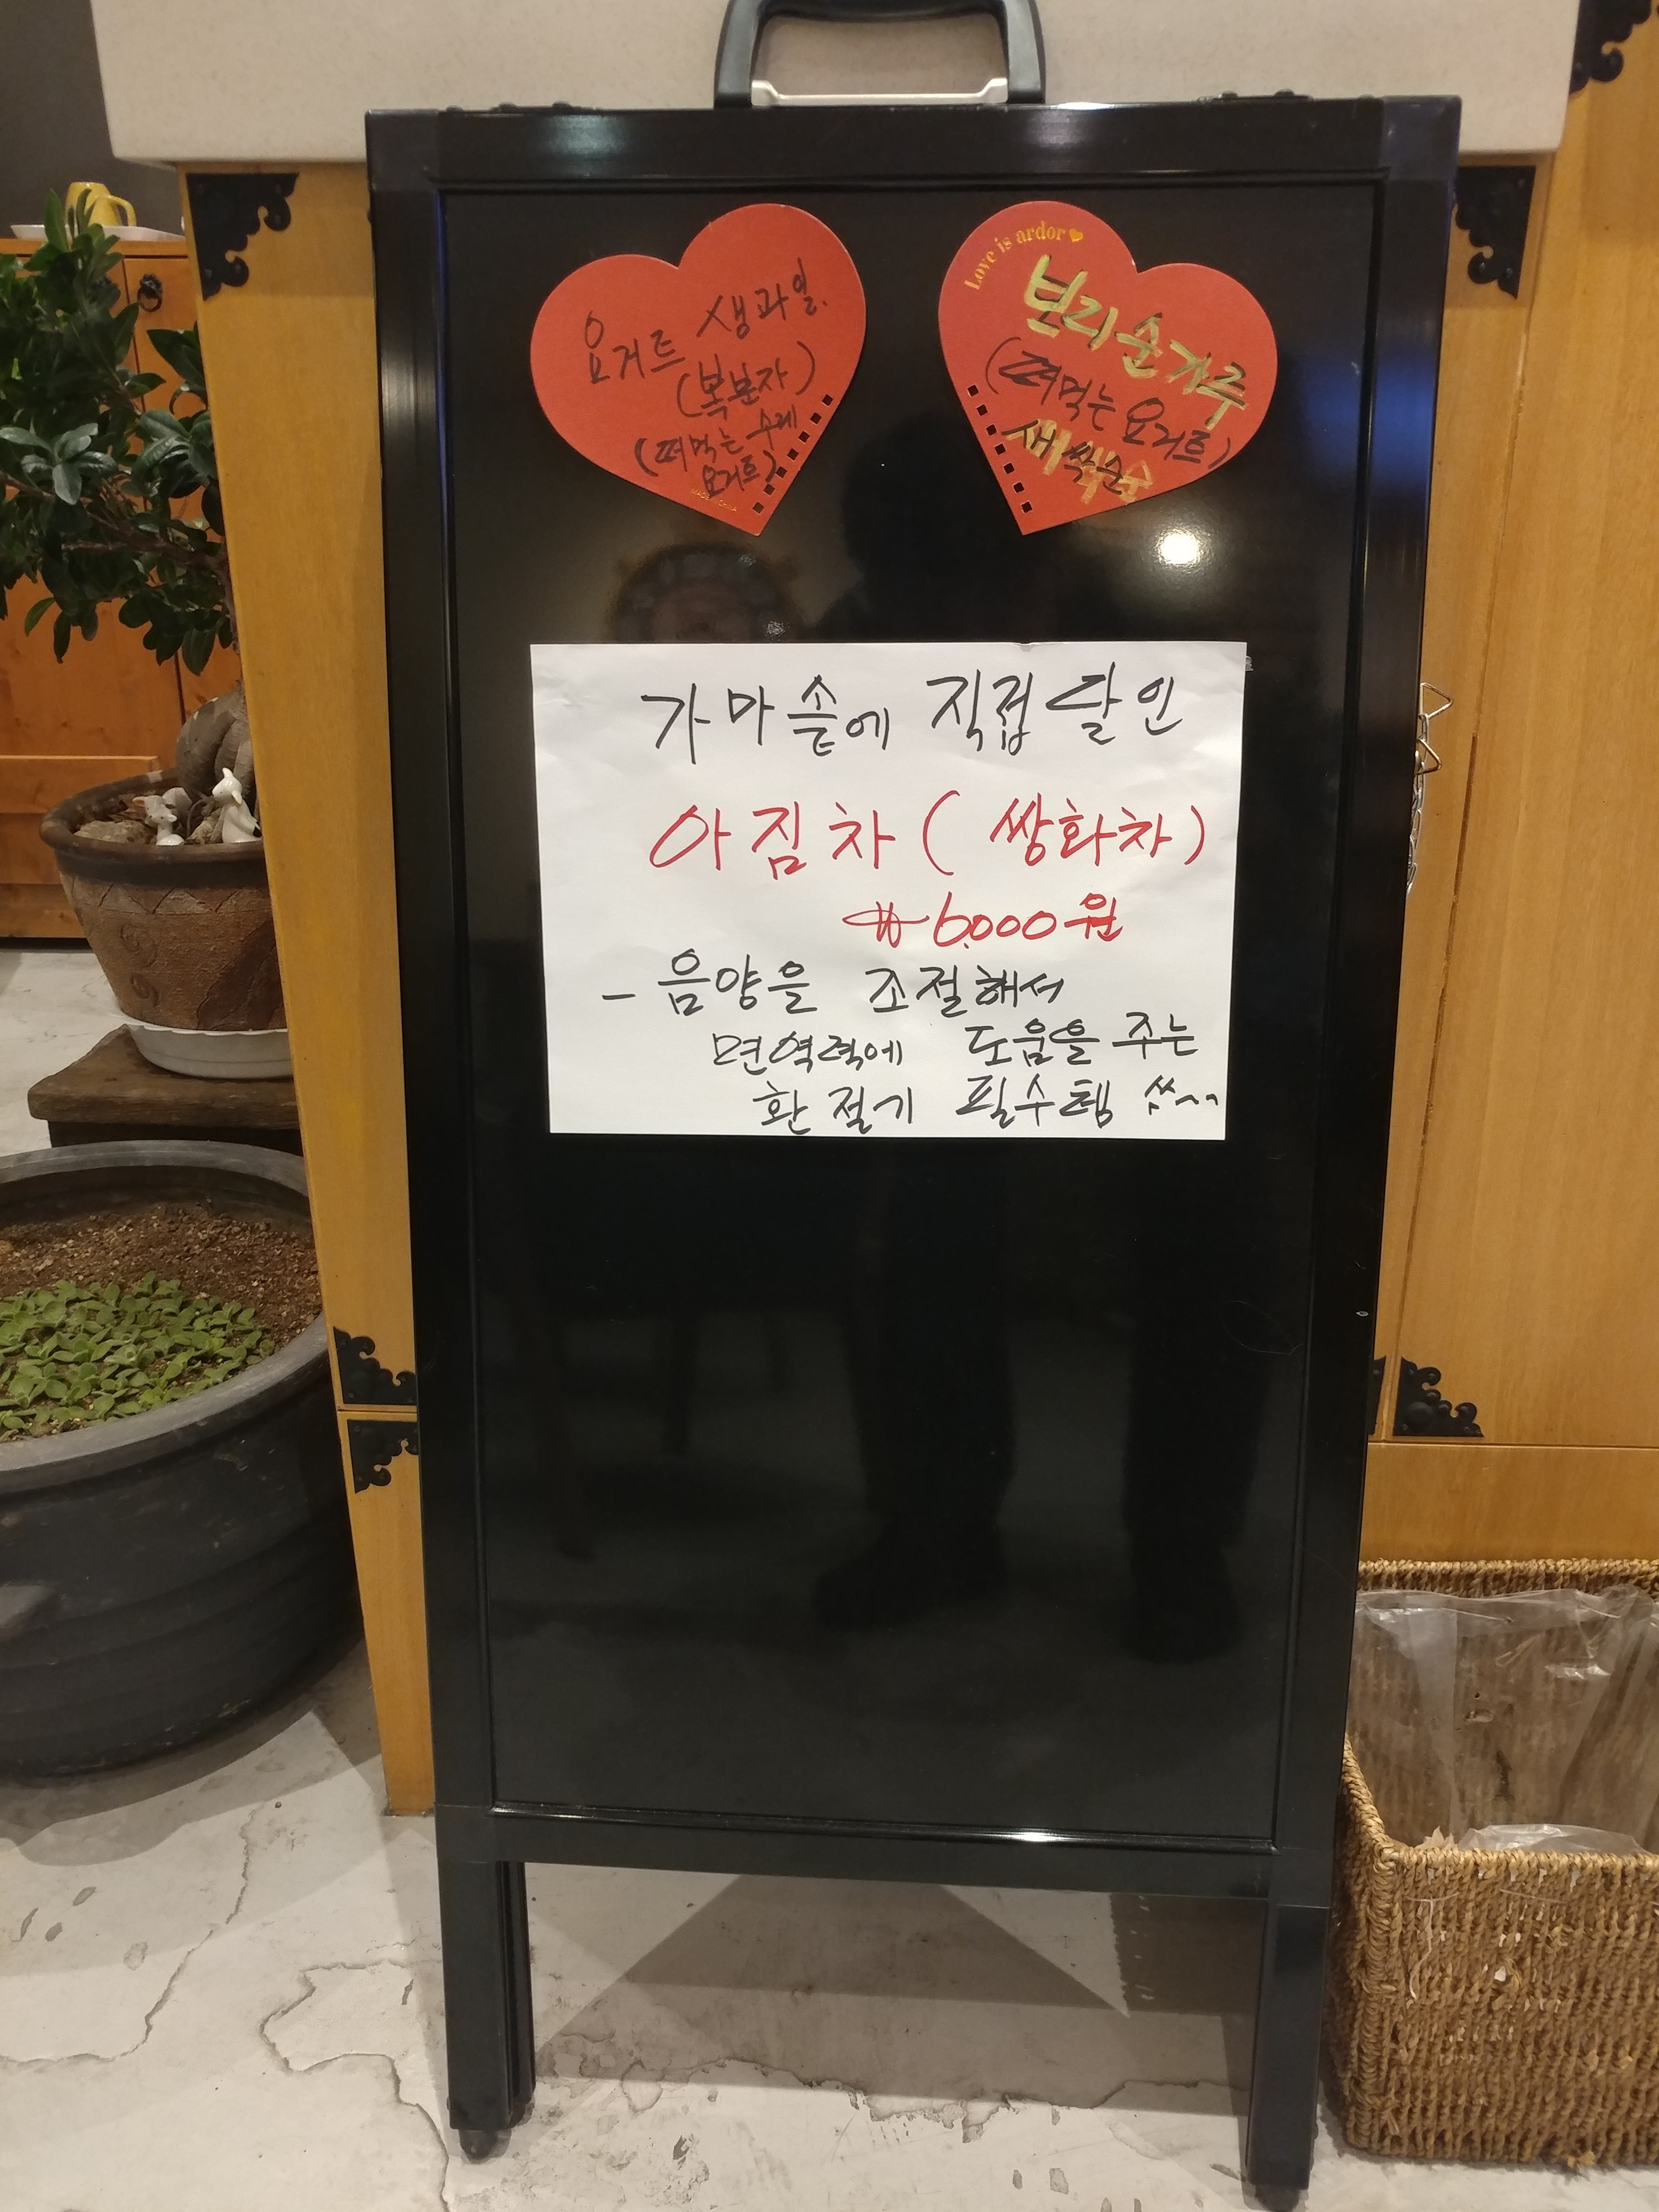 요거트 생과일.
(복분자)
(떠먹는 수제
요거트)
Love is ardor
보리순가루
(떠먹는 요거트)
새싹순
가마솥에 직접 달인
아침차 ( 쌍화차 )
₩ 6,000원
- 음양을 조절해서
면역력에 도움을 주는
환절기 필수템